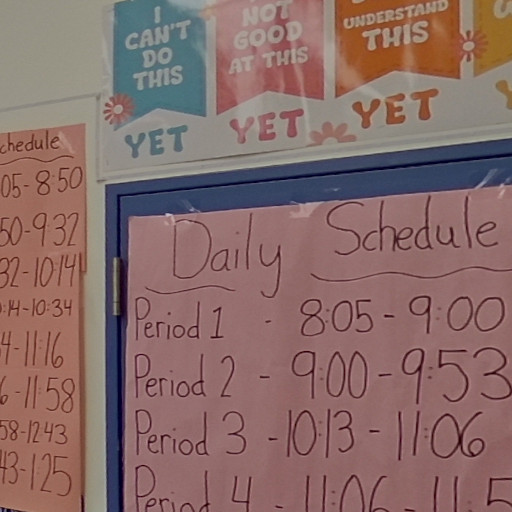 I
CAN'T
DO
THIS
YET
NOT
GOOD
AT THIS
YET
UNDERSTAND
THIS
YET
chedule
05-8:50
50-9:32
32-10:14
:14-10:34
4-11:16
6-11:58
58-12:43
43-1:25
Daily Schedule
Period 1 - 8:05-9:00
Period 2 - 9:00-9:53
Period 3 - 10:13-11:06
Period 4 - 11:06-11:5